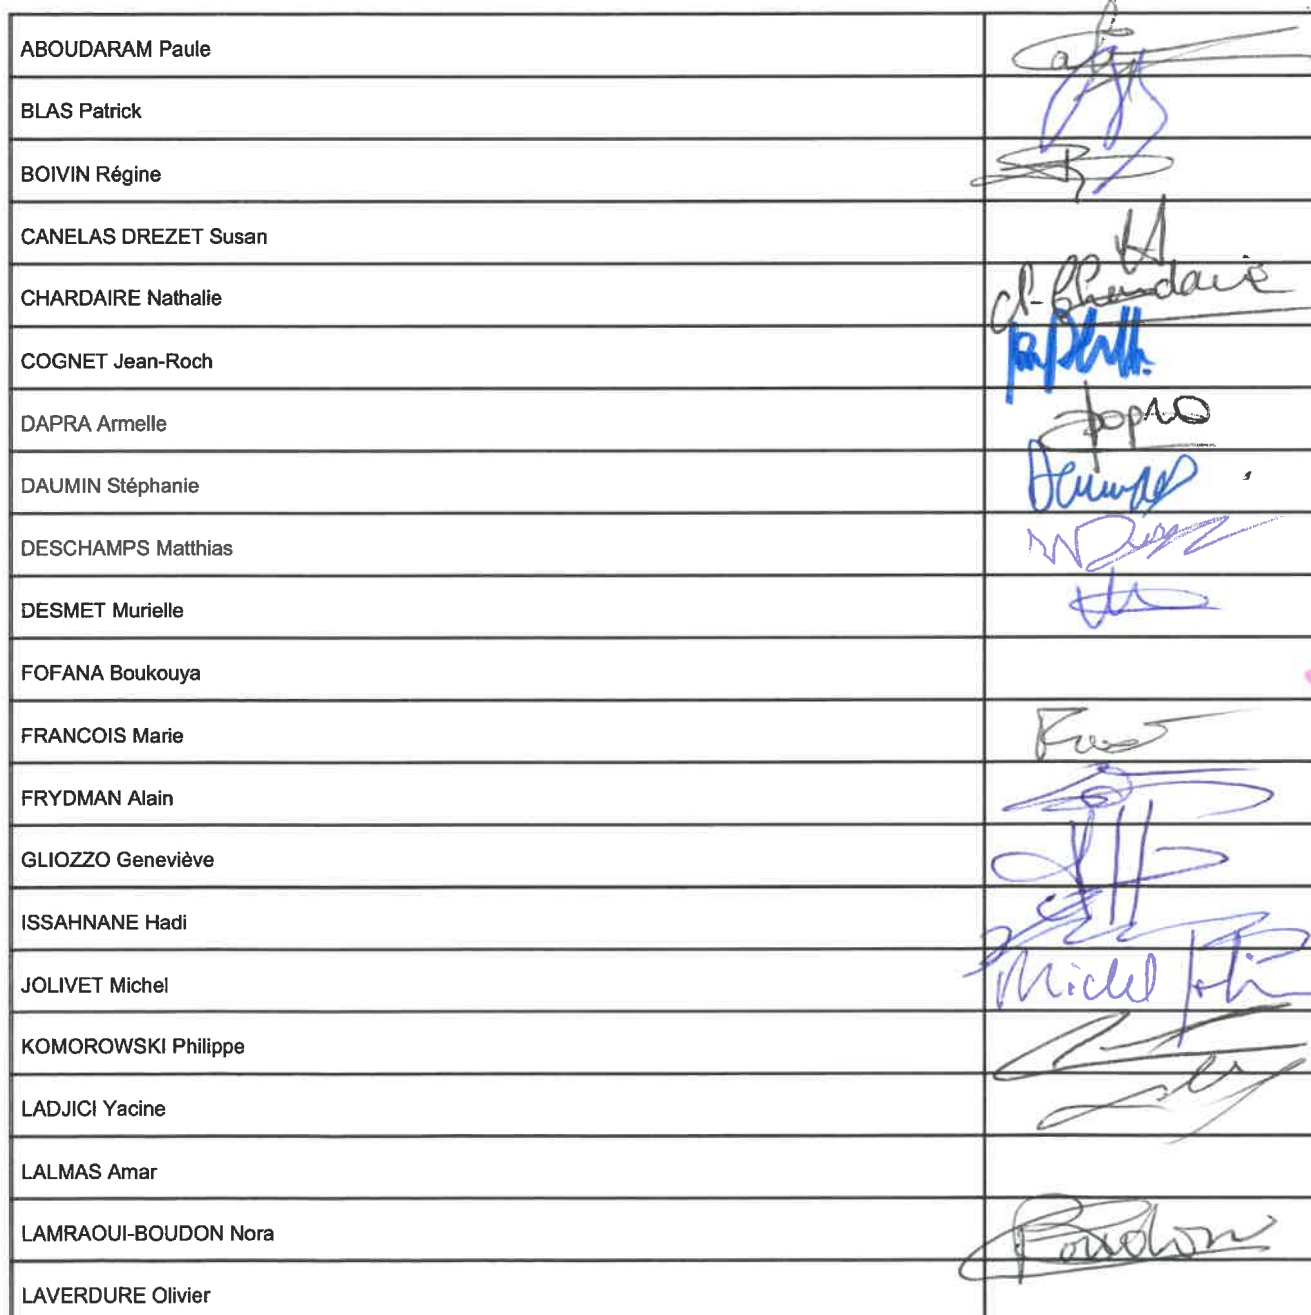 ABOUDARAM Paule
BLAS Patrick
BOIVIN Régine
CANELAS DREZET Susan
CHARDAIRE Nathalie
COGNET Jean-Roch
DAPRA Armelle
DAUMIN Stéphanie
DESCHAMPS Matthias
DESMET Murielle
FOFANA Boukouya
FRANCOIS Marie
FRYDMAN Alain
GLIOZZO Geneviève
ISSAHNANE Hadi
JOLIVET Michel Michel
KOMOROWSKI Philippe
LADJICI Yacine
LALMAS Amar
LAMRAOUI-BOUDON Nora Boudon
LAVERDURE Olivier